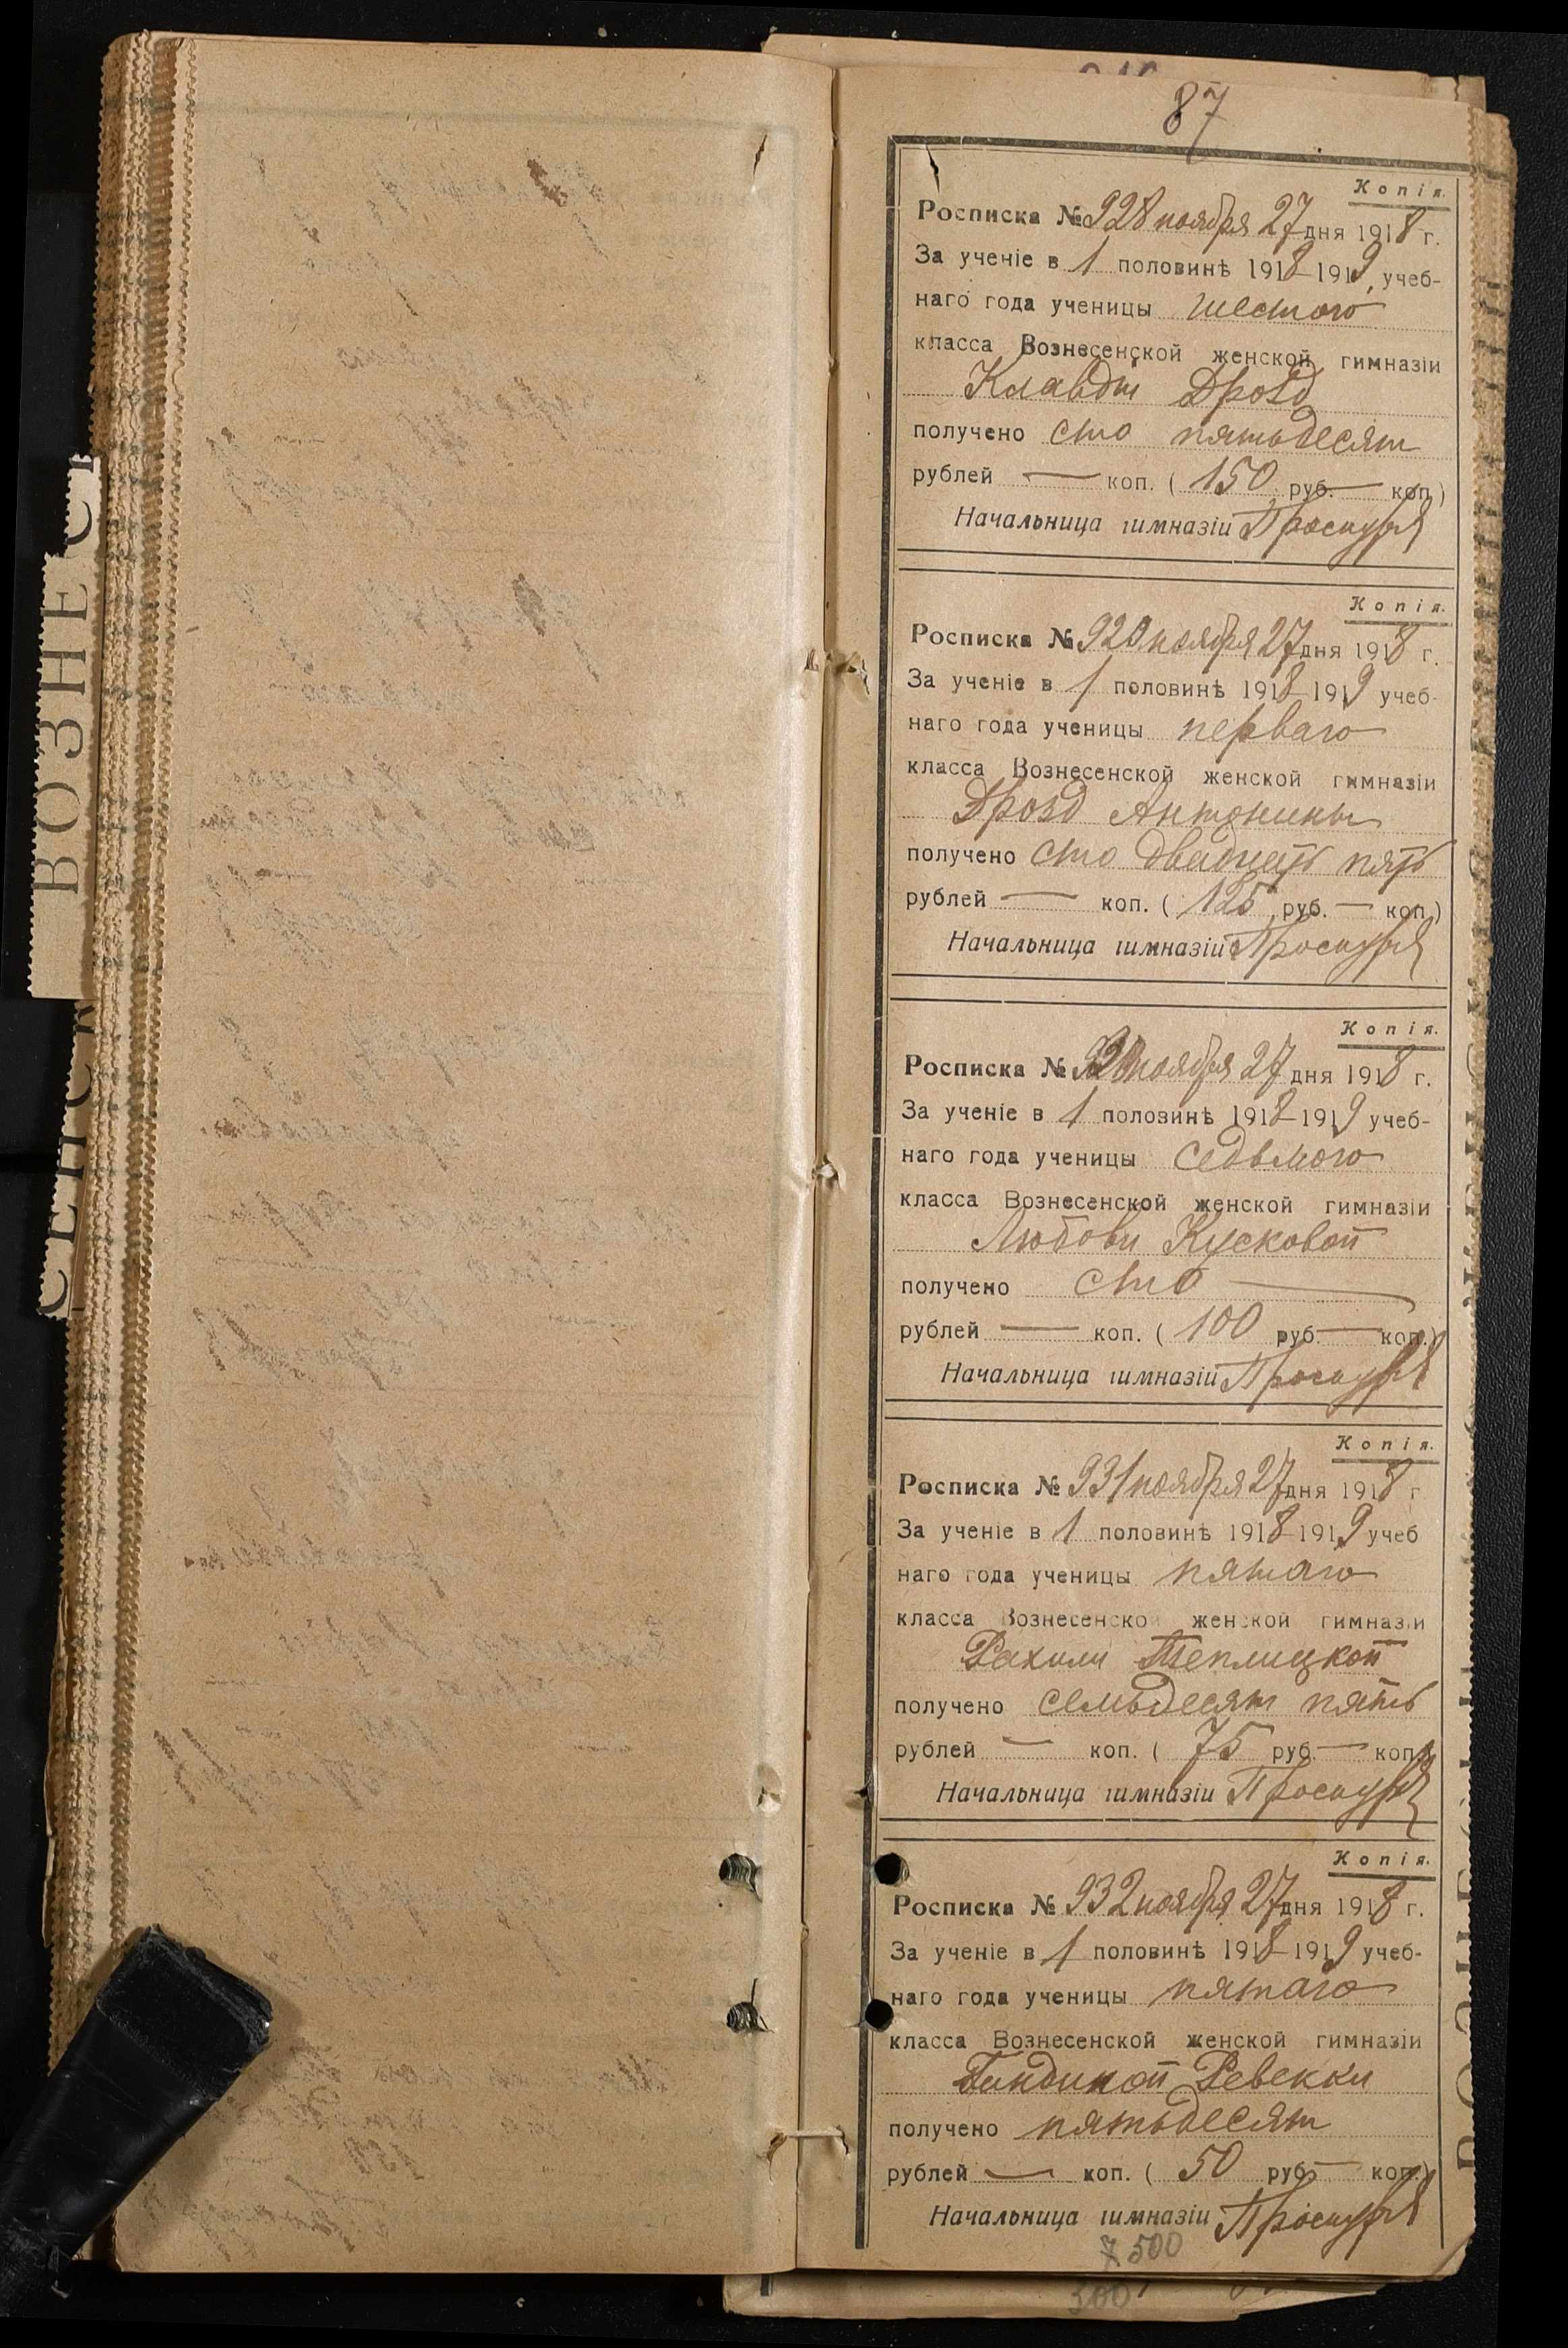 87
Копія.
Росписка № 928 ноября 27 дня 1918 г.
За ученіе в 1 половинѣ 1918–1919 учеб-
наго года ученицы шестого
класса Вознесенской женской гимназіи
Клавдіи Дрозд
получено сто пятьдесят
рублей — коп. (150 руб. — коп.)
Начальница гимназіи
Копія.
Росписка № 929 ноября 27 дня 1918 г.
За ученіе в 1 половинѣ 1918–1919 учеб-
наго года ученицы перваго
класса Вознесенской женской гимназіи
Дрозд Антонины
получено сто двадцать пять
рублей — коп. (125 руб. — коп.)
Начальница гимназіи
Копія.
Росписка № ноября 27 дня 1918 г.
За ученіе в 1 половинѣ 1918–1919 учеб-
наго года ученицы седьмого
класса Вознесенской женской гимназіи
Любови Кусковой
получено сто —
рублей — коп. (100 руб. — коп.)
Начальница гимназіи
Копія.
Росписка № 931 ноября 27 дня 1918 г
За ученіе в 1 половинѣ 1918–1919 учеб
наго года ученицы пятаго
класса Вознесенской женской гимназіи
Рахили Теплицкой
получено семьдесят пять
рублей — коп. (75 руб. — коп.)
Начальница гимназіи
Копія.
Росписка № 932 ноября 27 дня 1918 г.
За ученіе в 1 половинѣ 1918–1919 учеб-
наго года ученицы пятаго
класса Вознесенской женской гимназіи
Гиндиной Ревекки
получено пятьдесят
рублей — коп. (50 руб. — коп.)
Начальница гимназіи
500
300
ВОЗНЕС
СЕНСК